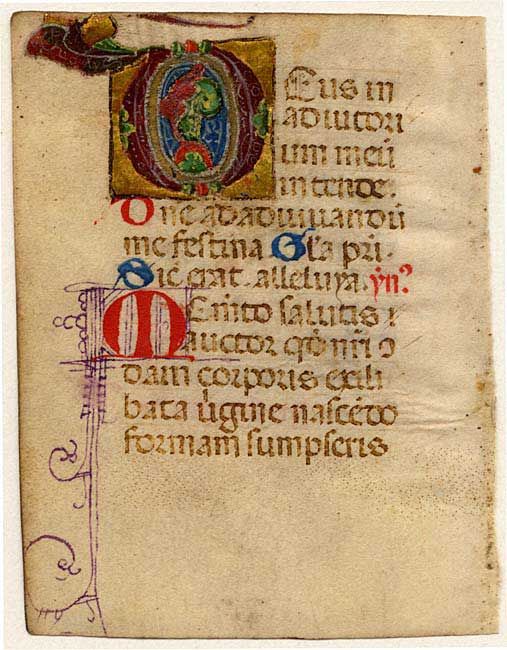 Deus in
adiutori
um meū
intende·
Dne ad adiuuandū
me festina Gła pri·
Sic̄ erat· alleluya· yn?
Mem̄to salutis
auctor qđ nr̄i
dam corporis ex illi
bata ùgine nascēdo
formam sumpseris